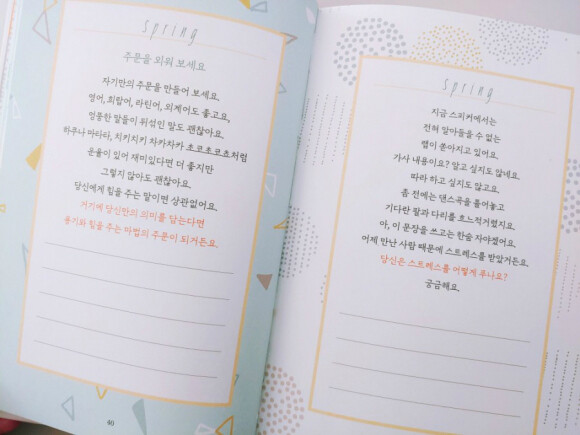 spring
주문을 외워 보세요
자기만의 주문을 만들어 보세요.
영어, 희랍어, 라틴어, 외계어도 좋고요,
엉뚱한 말들이 뒤섞인 말도 괜찮아요.
하쿠나 마타타, 치키치키 차카차카 초코초코초처럼
운율이 있어 재미있다면 더 좋지만
그렇지 않아도 괜찮아요.
당신에게 힘을 주는 말이면 상관없어요.
거기에 당신만의 의미를 담는다면
용기와 힘을 주는 마법의 주문이 되거든요.
40
spring
지금 스피커에서는
전혀 알아들을 수 없는
랩이 쏟아지고 있어요.
가사 내용이요? 알고 싶지도 않네요.
따라 하고 싶지도 않고요.
좀 전에는 댄스곡을 틀어놓고
기다란 팔과 다리를 흐느적거렸지요.
아, 이 문장을 쓰고는 한숨 자야겠어요.
어제 만난 사람 때문에 스트레스를 받았거든요.
당신은 스트레스를 어떻게 푸나요?
궁금해요.